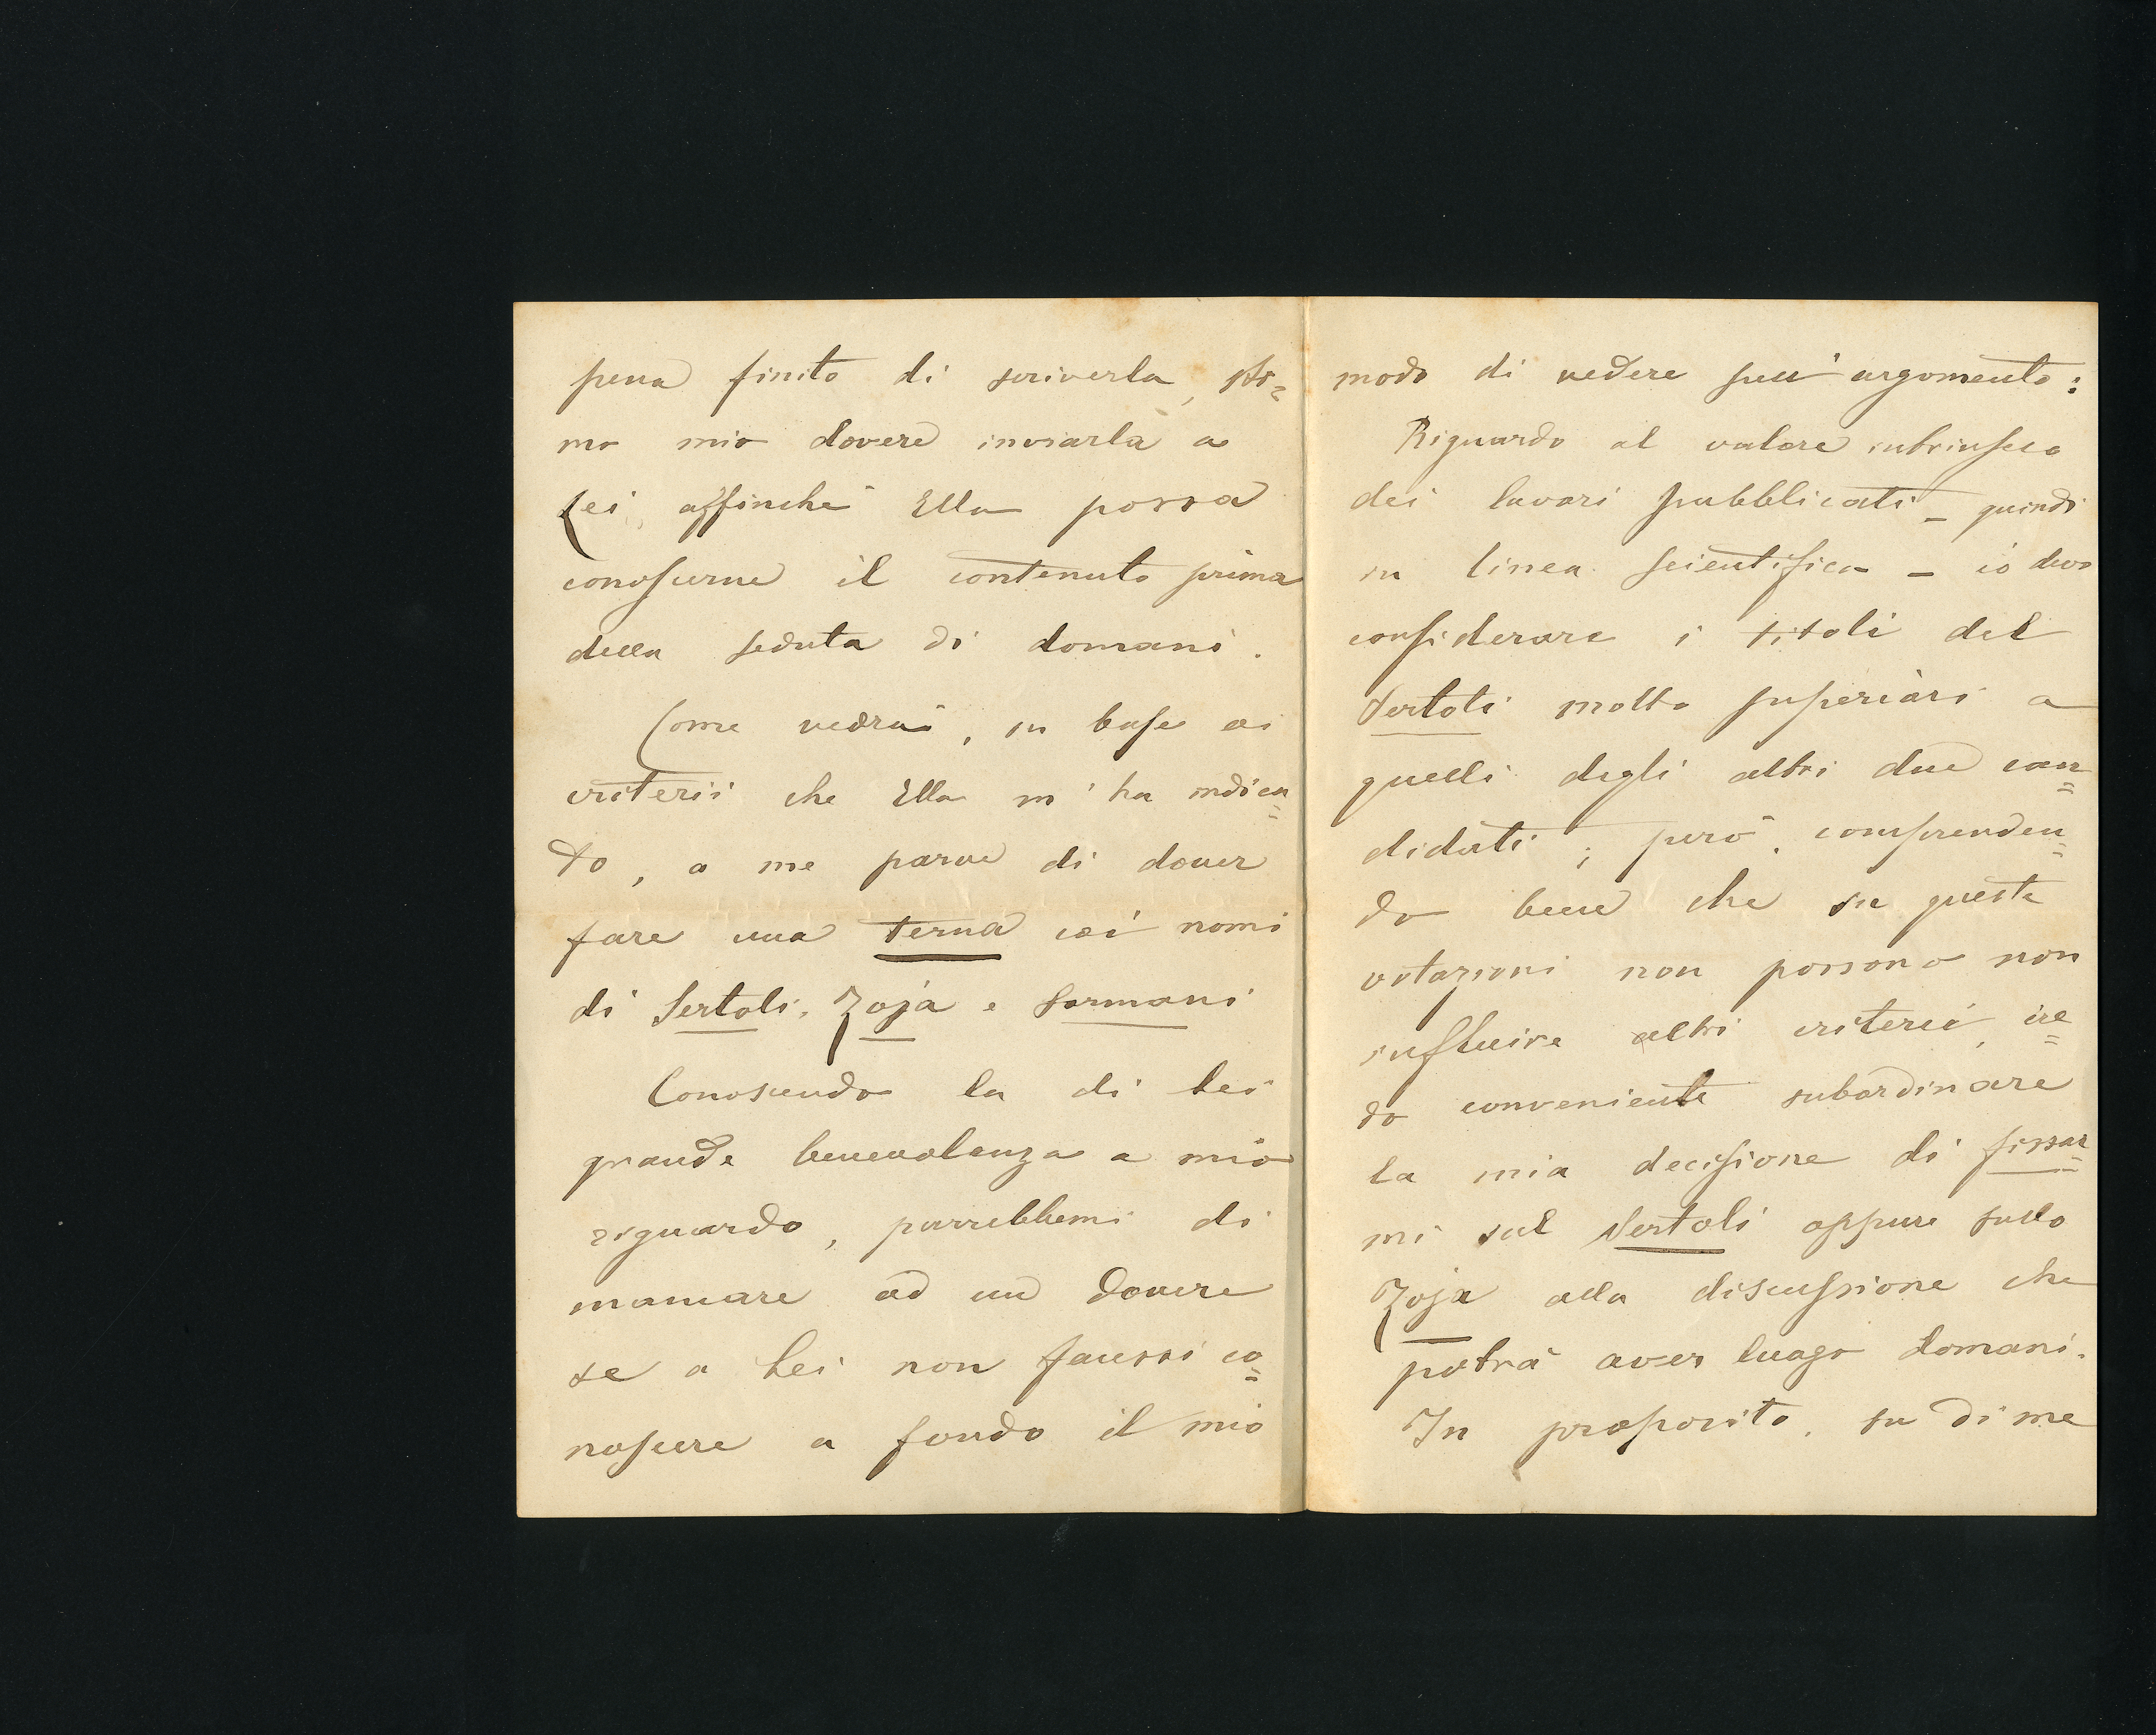 pena finito di scriverla, sti=
mo mio dovere inviarla a
Lei, affinché Ella possa
conoscerne il contenuto prima
della seduta di domani.
Come vedrà, in base ai
criterii che Ella m'ha indica=
to, a me parve di dover
fare una terna coi nomi
di Sertoli, Zoja e Sormani
Conoscendo la di Lei
grande benevolenza a mio
riguardo, parrebbemi di
mancare ad un dovere
se a Lei non facessi co=
noscere a fondo il mio
modo di vedere sull'argomento:
Riguardo al valore intrinseco
dei lavori pubblicati – quindi
in linea scientifica – io devo
considerare i titoli del
Sertoli molto superiori a
quelli degli altri due can=
didati; però, comprenden=
do bene che su queste
votazioni non possono non
influire altri criterii, cre=
do conveniente subordinare
la mia decisione di fissar=
mi sul Sertoli oppure sullo
Zoja alla discussione che
potrà aver luogo domani.
In proposito, su di me